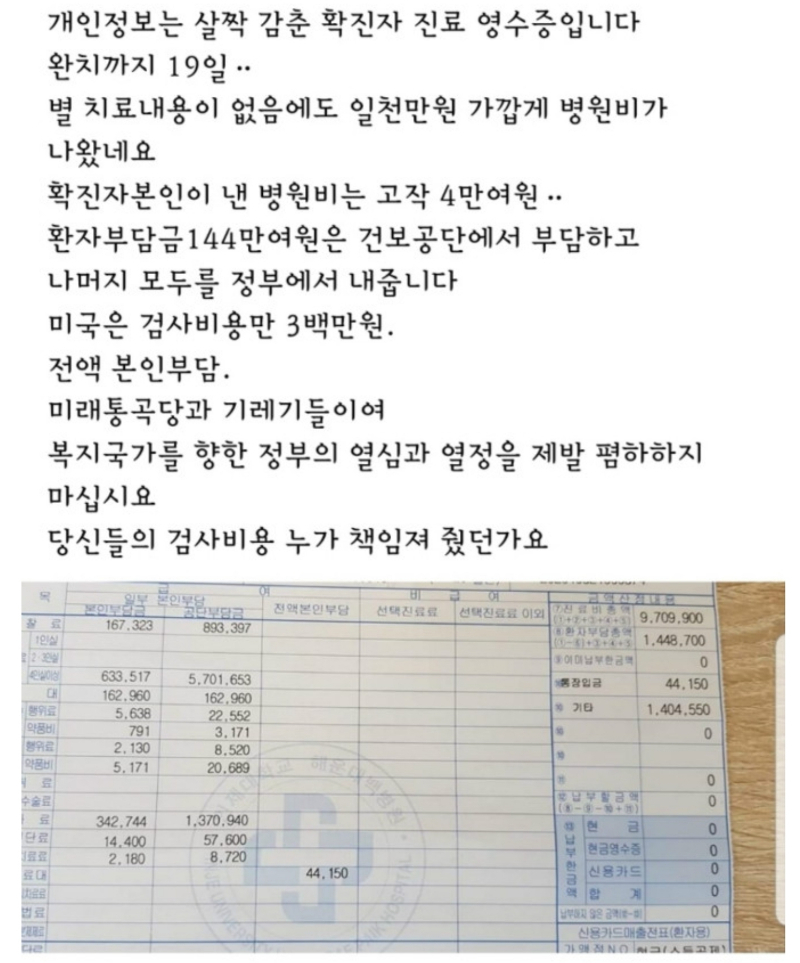 개인정보는 살짝 감춘 확진자 진료 영수증입니다
완치까지 19일..
별 치료내용이 없음에도 일천만원 가깝게 병원비가
나왔네요
확진자본인이 낸 병원비는 고작 4만여원..
환자부담금144만여원은 건보공단에서 부담하고
나머지 모두를 정부에서 내줍니다
미국은 검사비용만 3백만원.
전액 본인부담.
미래통곡당과 기레기들이여
복지국가를 향한 정부의 열심과 열정을 제발 폄하하지
마십시요
당신들의 검사비용 누가 책임져 줬던가요
목 급 여 비 급 여 금액산정내용
일부 본인부담 전액본인부담 선택진료료 선택진료료 이외
본인부담금 공단부담금
⑦진료비총액 9,709,900
찰 료 167,323 893,397
⑧환자부담총액 1,448,700
1인실
⑨이미납부한금액 0
2·3인실
4인실이상 633,517 5,701,653
통장입금 44,150
대 162,960 162,960
행위료 5,638 22,552
기타 1,404,550
약품비 791 3,171
0
행위료 2,130 8,520
약품비 5,171 20,689
료 0
수술료
납부할금액 0
료 342,744 1,370,940
현 금 0
단료 14,400 57,600
현금영수증 0
료료 2,180 8,720
신용카드 0
료대 44,150
합 계 0
납부하지 않은 금액 0
신용카드매출전표(환자용)
가맹점NO 현금(소득공제)
납부한금액
인제대학교 해운대백병원
HOSPITAL